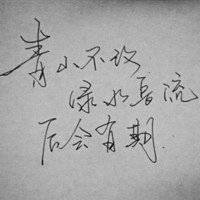 青山不改
绿水长流
后会有期.